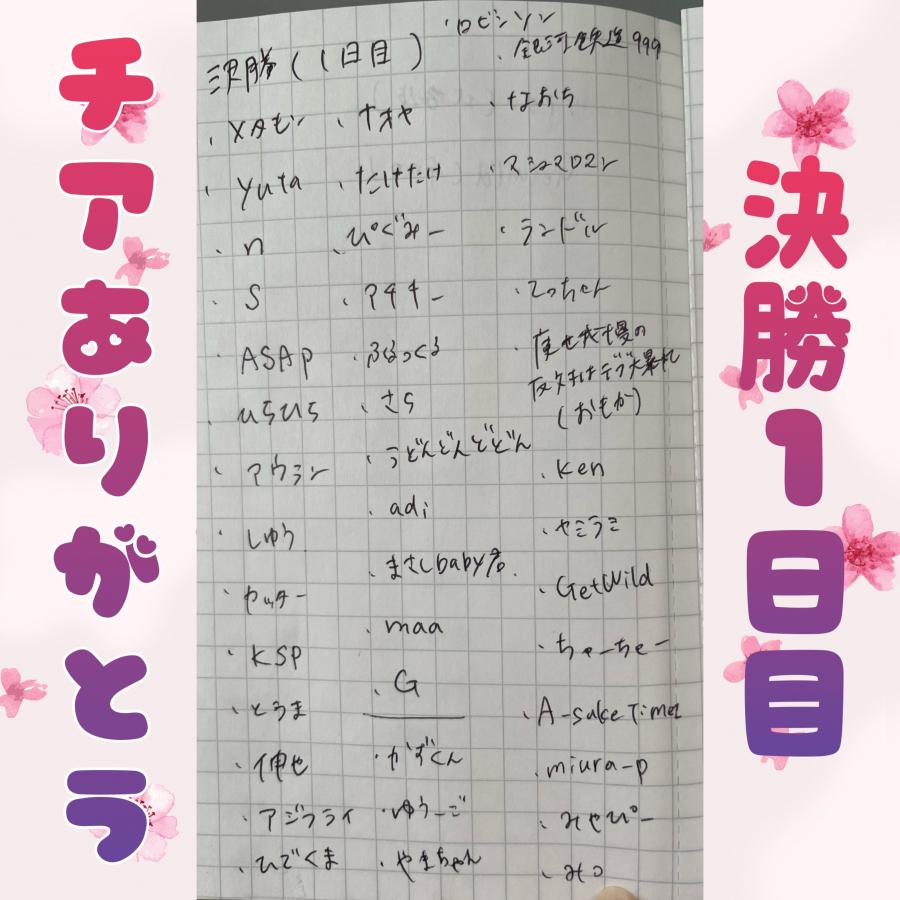 チアありがとう
決勝1日目
決勝(1日目)
・ロビンソン
・銀河鉄道999
・メタモン
・yuta
・n
・S
・ASAP
・ひらひら
・アウラン
・しゅう
・ヤッター
・KSP
・とうま
・伸也
・アジフライ
・ひでくま
・ナオヤ
・たけたけ
・ぴぐみー
・アキキー
・ふるっくる
・さら
・うどんどんどどん
・adi
・まさしbaby君
・maa
・G
・かずくん
・ゆうーご
・やまちゃん
・なおち
・マシュマロマン
・ランドル
・てっちゃん
・痩せ我慢の
反動はデブ大暴れ
(おもか)
・Ken
・ヤミラミ
・GetWild
・ちゃーちゃー
・A-sake Time
・miura-p
・みやぴー
・みつ